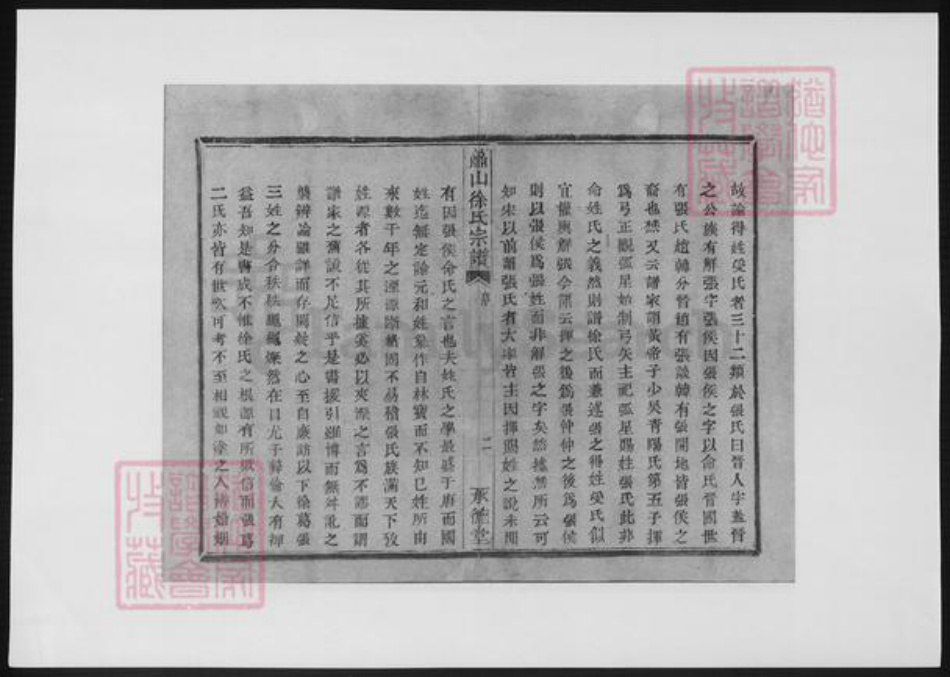 故論得姓受氏者三十二類於張氏曰晉人字蓋晉
之公族有解張字張侯因張侯之字以命氏晉國世
有張氏趙韓分晉趙有張談韓有張開地皆張侯之
裔也然又云譜家謂黃帝子少昊青陽氏第五子揮
為弓正觀弧星始制弓矢主祀弧星賜姓張氏此非
命姓氏之義然則譜徐氏而兼述張之得姓受氏似
宜權輿解張今第云揮之後為張仲仲之後為張侯
則以張侯為張姓而非解張之字矣諒據無所云可
知宋以前譜張氏者大率皆主因揮賜姓之說未聞
蕭山徐氏宗譜
序
二
承德堂
有因張侯命氏之言也夫姓氏之學最盛于唐而國
姓迄無定論元和姓纂作自林寶而不知已姓所由
來數千年之源流斷續固不易稽張氏族滿天下攷
姓源者各從其所據奚必以夾漈之言為不謬而謂
譜家之舊說不足信乎是書援引雖博而無舛訛之
弊辨論雖詳而存闕疑之心至自廉訪以下徐葛張
三姓之分合秩秩繩繩燦然在目尤于彝倫大有裨
益吾知是書成不惟徐氏之根源有所徵信而張葛
二氏亦皆有世次可考不至相視如塗之人將婚姻
譜學會
收藏